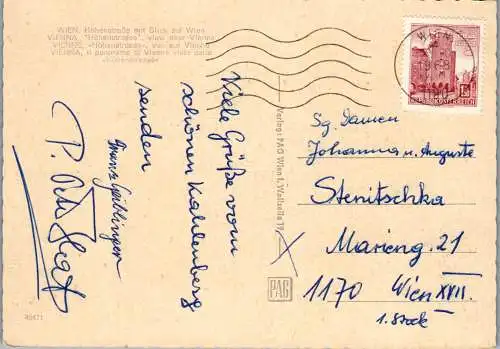 WIEN, Höhenstraße mit Blick auf Wien
VIENNA, "Höhenstrasse", view over Vienna
VIENNE, «Höhenstrasse», vue sur Vienne
VIENNA, Il panorama di Vienna visto dalla
«Höhenstrasse»
Viele Grüße vom
schönen Kahlenberg
senden
40471
Verlag: PAG Wien I, Wollzeile 19
PAG
WIEN
1.50
REPUBLIK ÖSTERREICH
Sg. Damen
Johanna u. Auguste
Stenitschka
Marieng. 21
1170 Wien XVII.
1. Stock